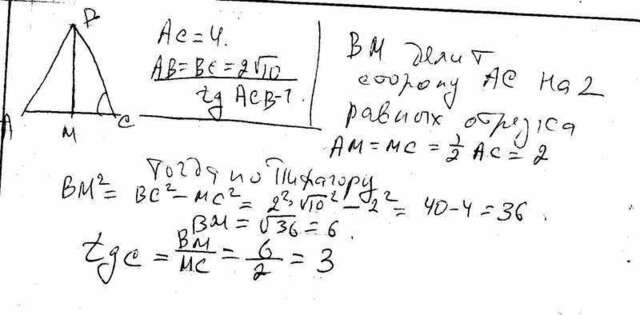 B
A
M
C
AC=4.
AB=BC=2√10
tg ACB-?
BM делит
сторону AC на 2
равных отрезка
AM=MC=1/2 AC=2
Тогда по Пифагору
BM²= BC²-MC²= 2²·√10²-2²= 40-4=36.
BM=√36=6.
tg C = BM/MC = 6/2 = 3